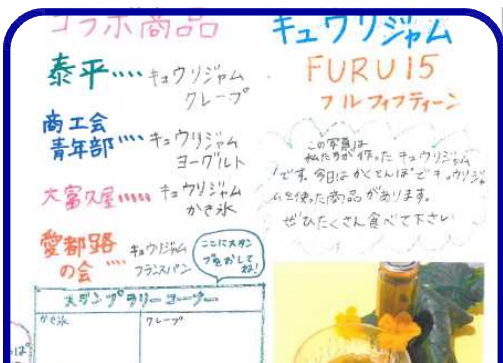 コラボ商品
泰平‥‥キュウリジャム
クレープ
商工会
青年部‥‥キュウリジャム
ヨーグルト
大富久屋‥‥‥キュウリジャム
かき氷
愛都路
の会‥‥キュウリジャム
フランスパン
ここにスタン
プをおして
ね!
スタンプラリーコーナー
かき氷
クレープ
キュウリジャム
FURU15
フルフィフティーン
この写真は
私たちが作ったキュウリジャム
です。今日はかくてんぽでキュウリジャ
ムを使った商品があります。
ぜひたくさん食べて下さい